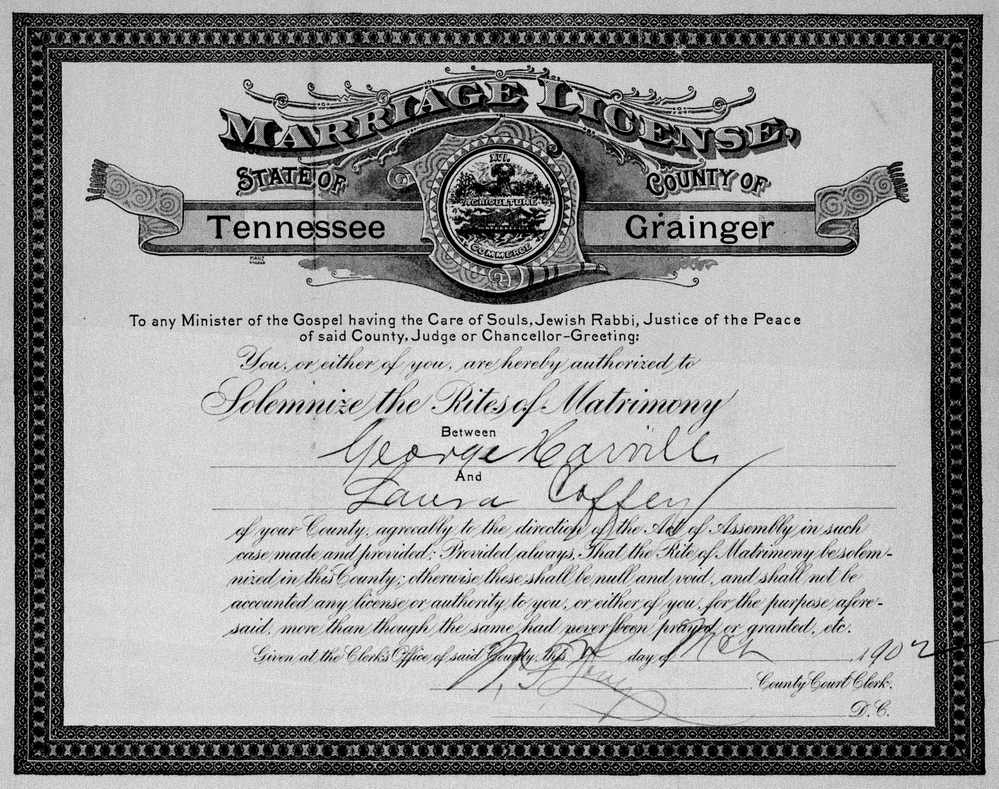 MARRIAGE LICENSE,
STATE OF COUNTY OF
XVI.
AGRICULTURE
COMMERCE
Tennessee Grainger
To any Minister of the Gospel having the Care of Souls, Jewish Rabbi, Justice of the Peace
of said County, Judge or Chancellor-Greeting:
You, or either of you, are hereby authorized to
Solemnize the Rites of Matrimony
Between
George Harvill
And
Laura Coffey
of your County, agreeably to the direction of the Act of Assembly in such
case made and provided; Provided always, That the Rite of Matrimony be solem-
nized in this County; otherwise these shall be null and void, and shall not be
accounted any license or authority to you, or either of you, for the purpose afore-
said, more than though the same had never been prayed or granted, etc.
Given at the Clerk's Office of said County, this day of Mch 1902
County Court Clerk.
D. C.